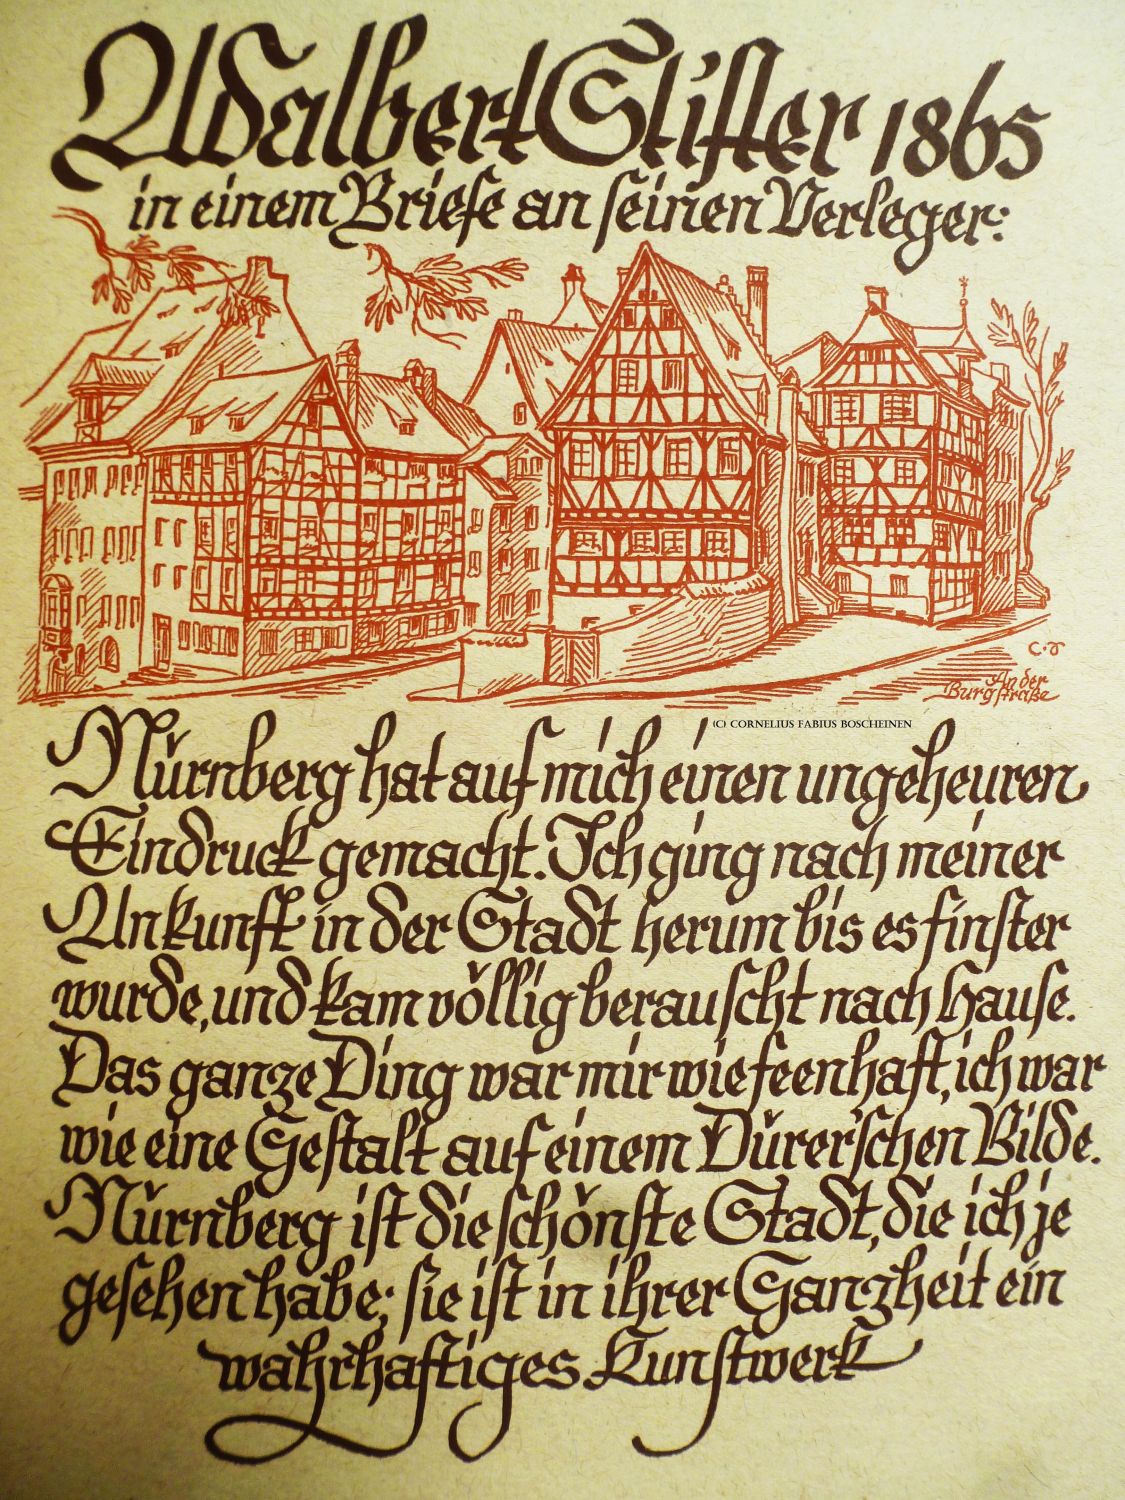 Adalbert Stifter 1865
in einem Briefe an seinen Verleger:
C.V
An der
Burgstraße
(C) CORNELIUS FABIUS BOSCHEINEN
Nürnberg hat auf mich einen ungeheuren
Eindruck gemacht. Ich ging nach meiner
Ankunft in der Stadt herum bis es finster
wurde, und kam völlig berauscht nach Hause.
Das ganze Ding war mir wie feenhaft, ich war
wie eine Gestalt auf einem Dürer'schen Bilde.
Nürnberg ist die schönste Stadt, die ich je
gesehen habe; sie ist in ihrer Ganzheit ein
wahrhaftiges Kunstwerk